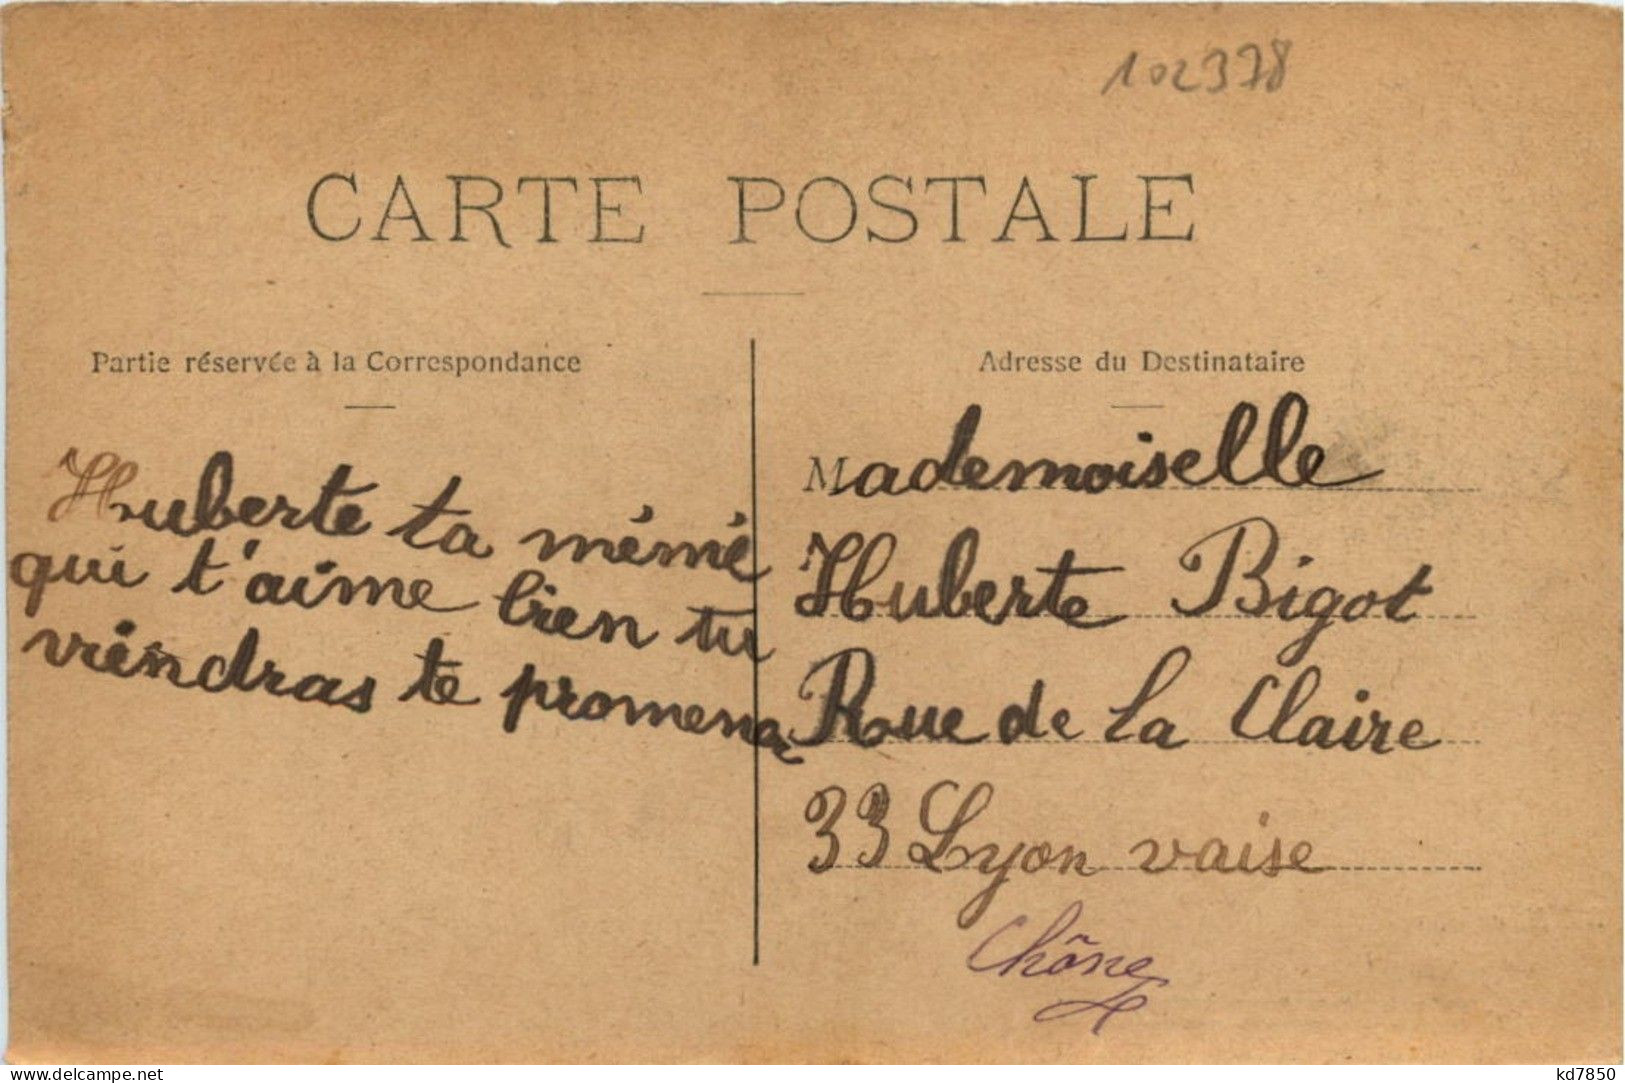 102378
CARTE POSTALE
Partie réservée à la Correspondance
Huberte ta mémé
qui t'aime bien tu
viendras te promener
Adresse du Destinataire
Mademoiselle
Huberte Bigot
Rue de la Claire
33 Lyon vaise
Rhône
www.delcampe.net
kd7850